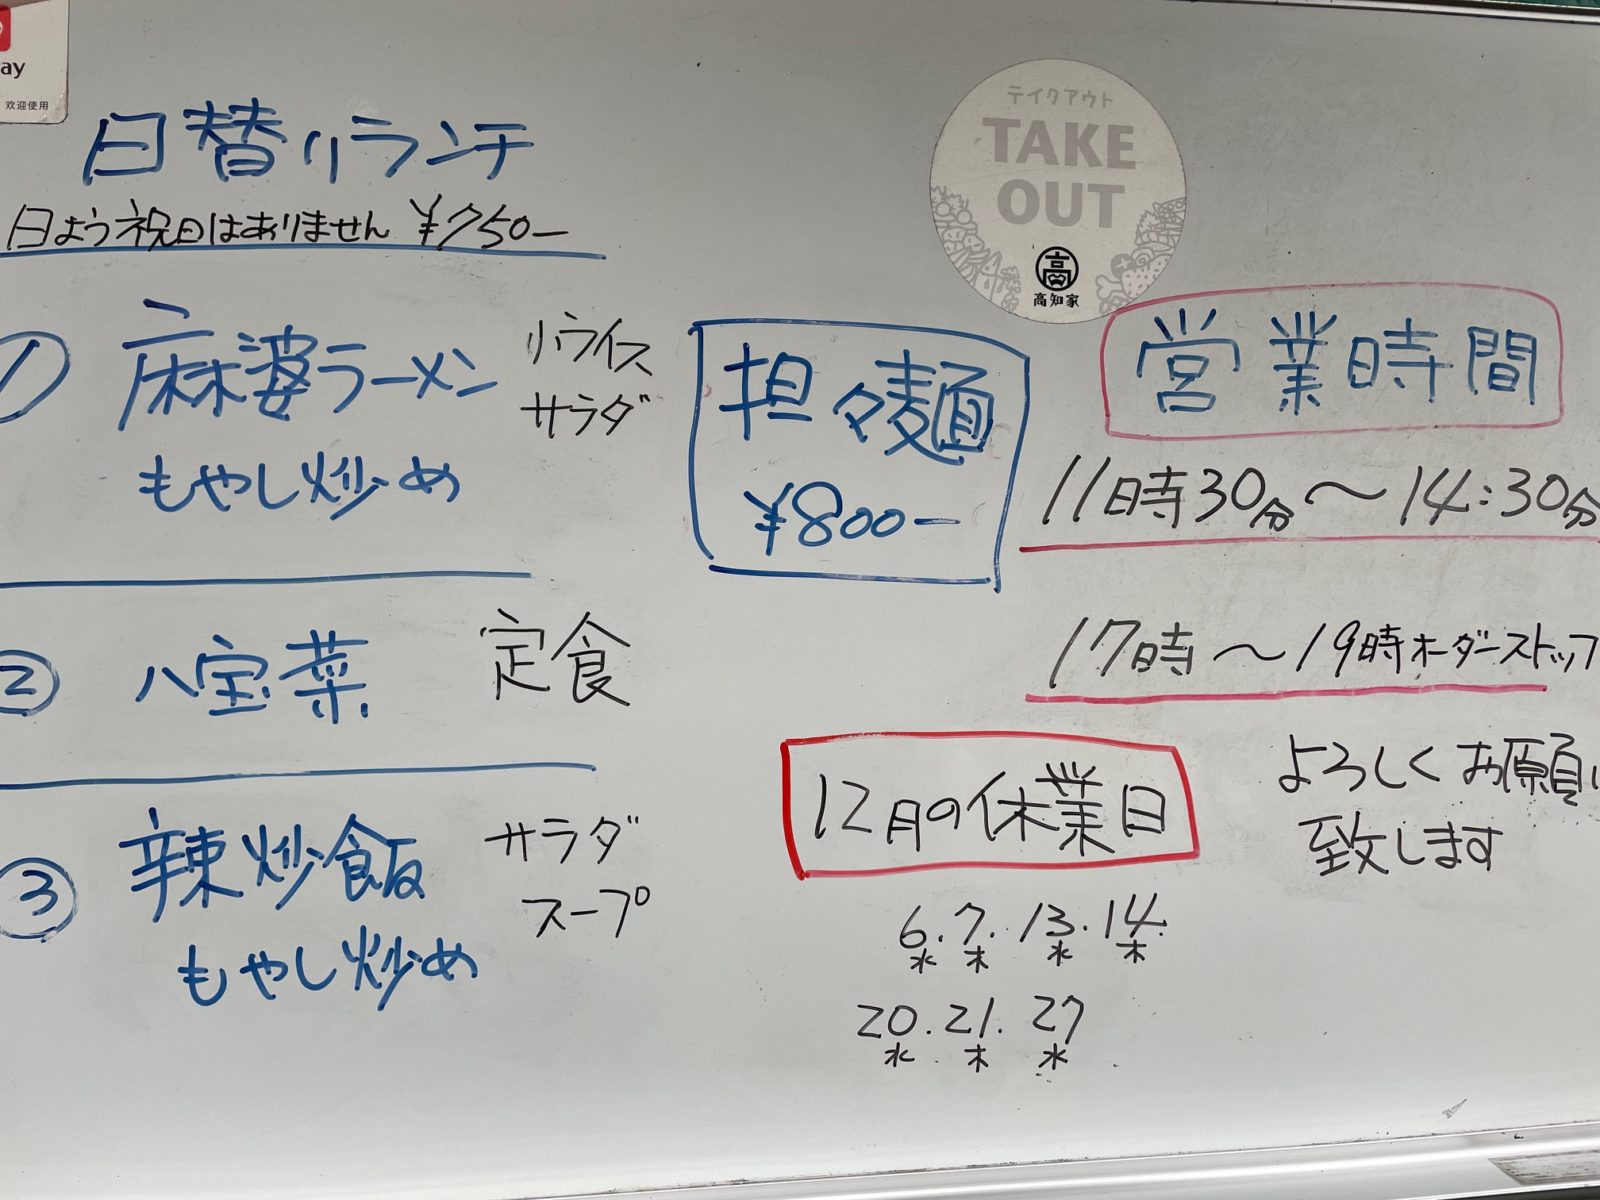 ay
欢迎使用
日替りランチ
日よう祝日はありません ¥750ー
① 麻婆ラーメン
小ライス
サラダ
もやし炒め
② 八宝菜 定食
③ 辣炒飯
サラダ
スープ
もやし炒め
担々麺
¥800ー
テイクアウト
TAKE
OUT
高
高知家
営業時間
11時30分〜14:30分
17時〜19時オーダーストップ
よろしくお願い
致します
12月の休業日
6.7.13.14.
水 木 水 木
20.21.27
水 木 水